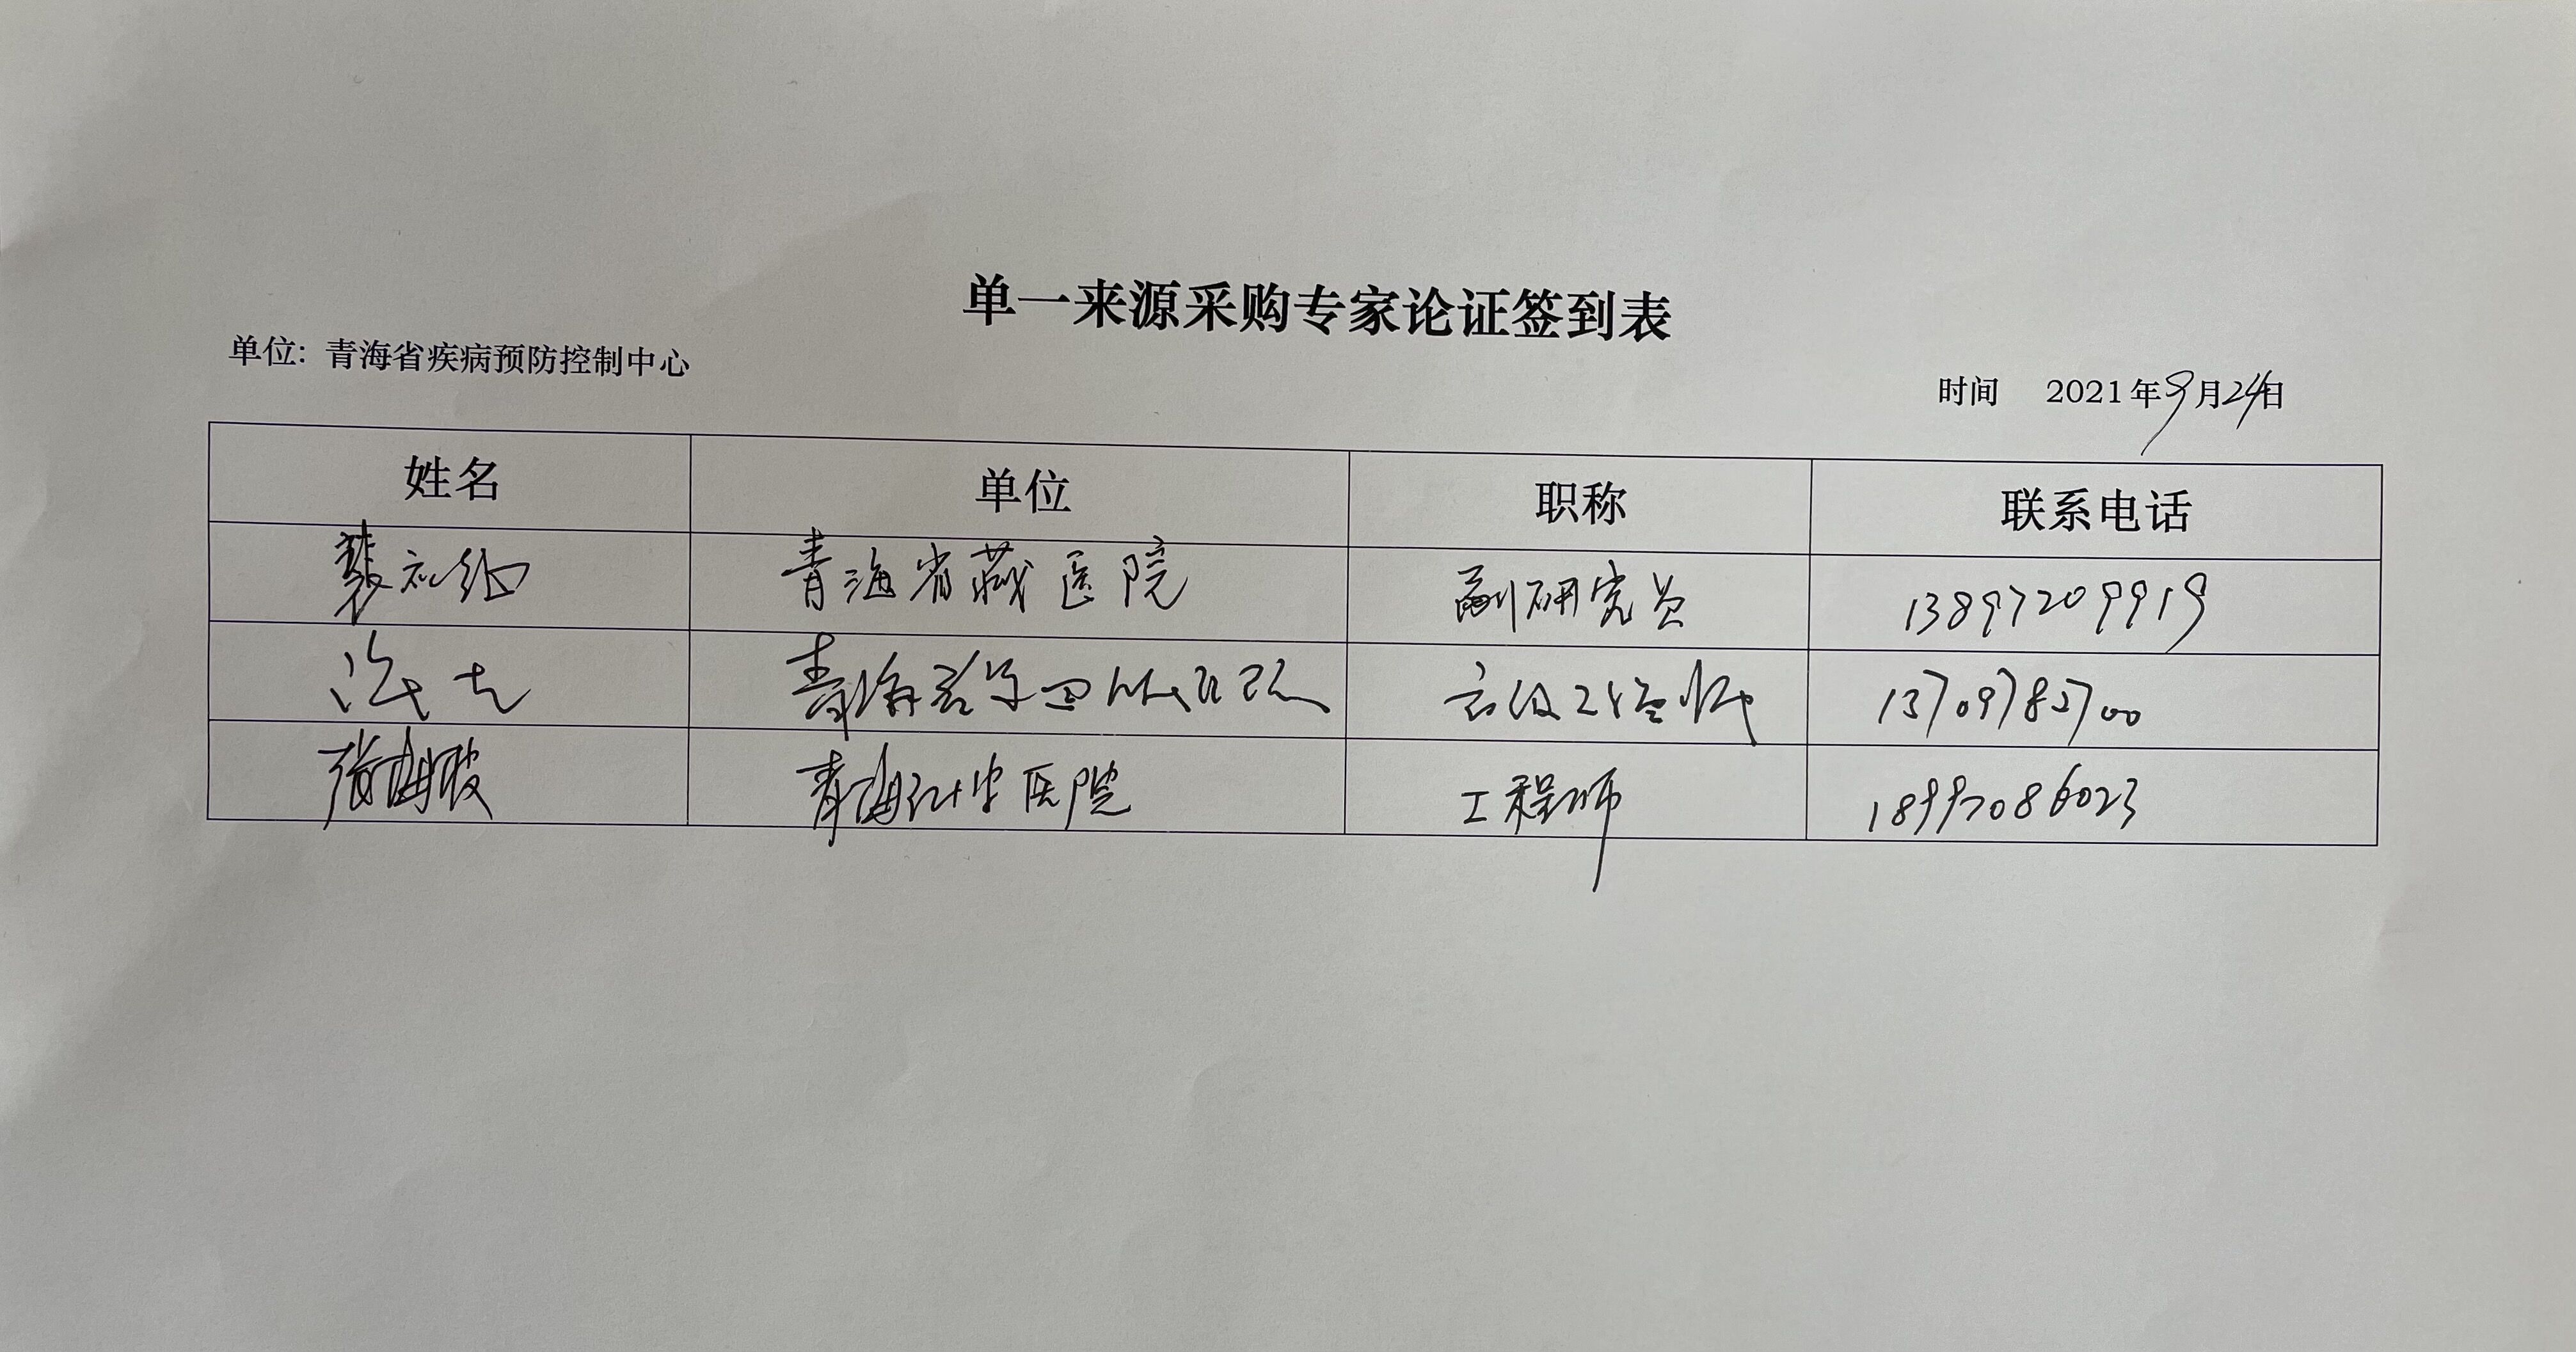 单一来源采购专家论证签到表
单位: 青海省疾病预防控制中心
时间 2021年9月24日
姓名 单位 职称 联系电话
青海省藏医院 副研究员 13897209919
青海省第四人民医院 高级工程师 13709782700
张海波 青海红十字医院 工程师 18997086023